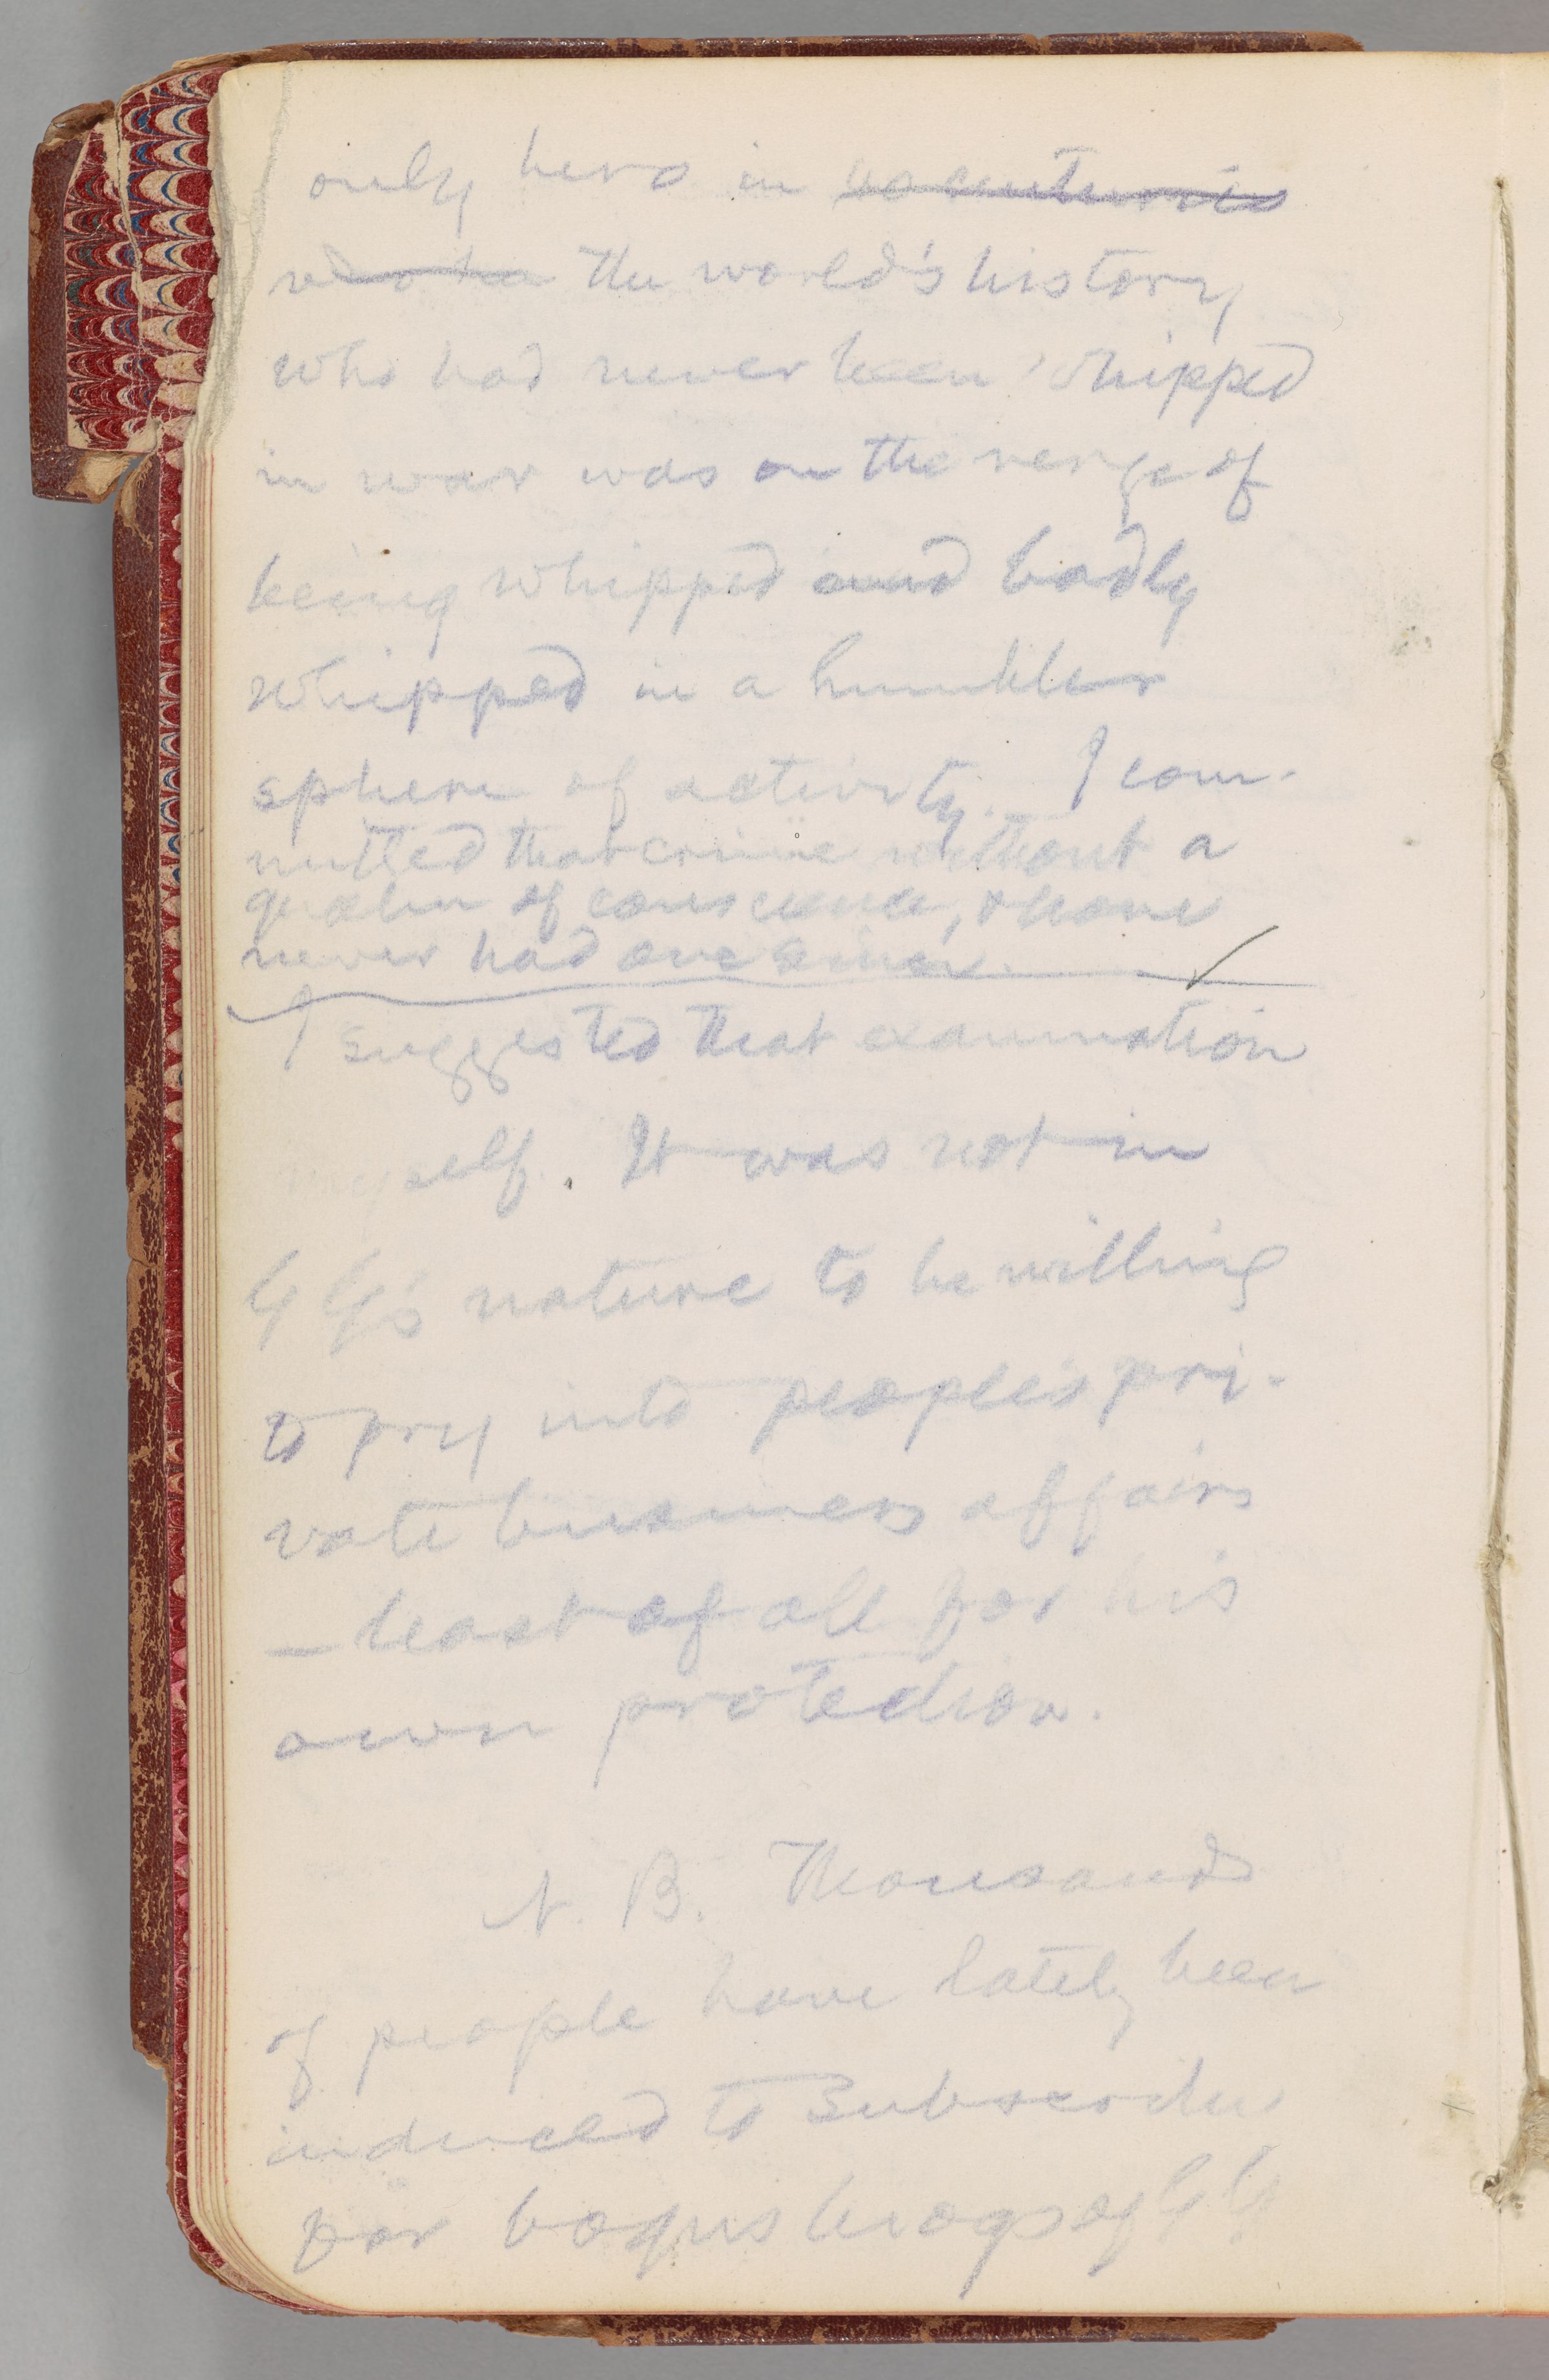 only hero in 40 centuries
who ha the world's history
who had never been whipped
in war was on the verge of
being whipped and badly
whipped in a humbler
sphere of activity. I com-
mitted that crime without a
qualm of conscience, & have
never had one since.
I suggested that examination
myself. It was not in
GG's nature to be willing
to pry into people's pri-
vate business affairs
— least of all for his
own protection.
N. B. Thousands
of people have lately been
induced to subscribe
for bogus biogs of GG